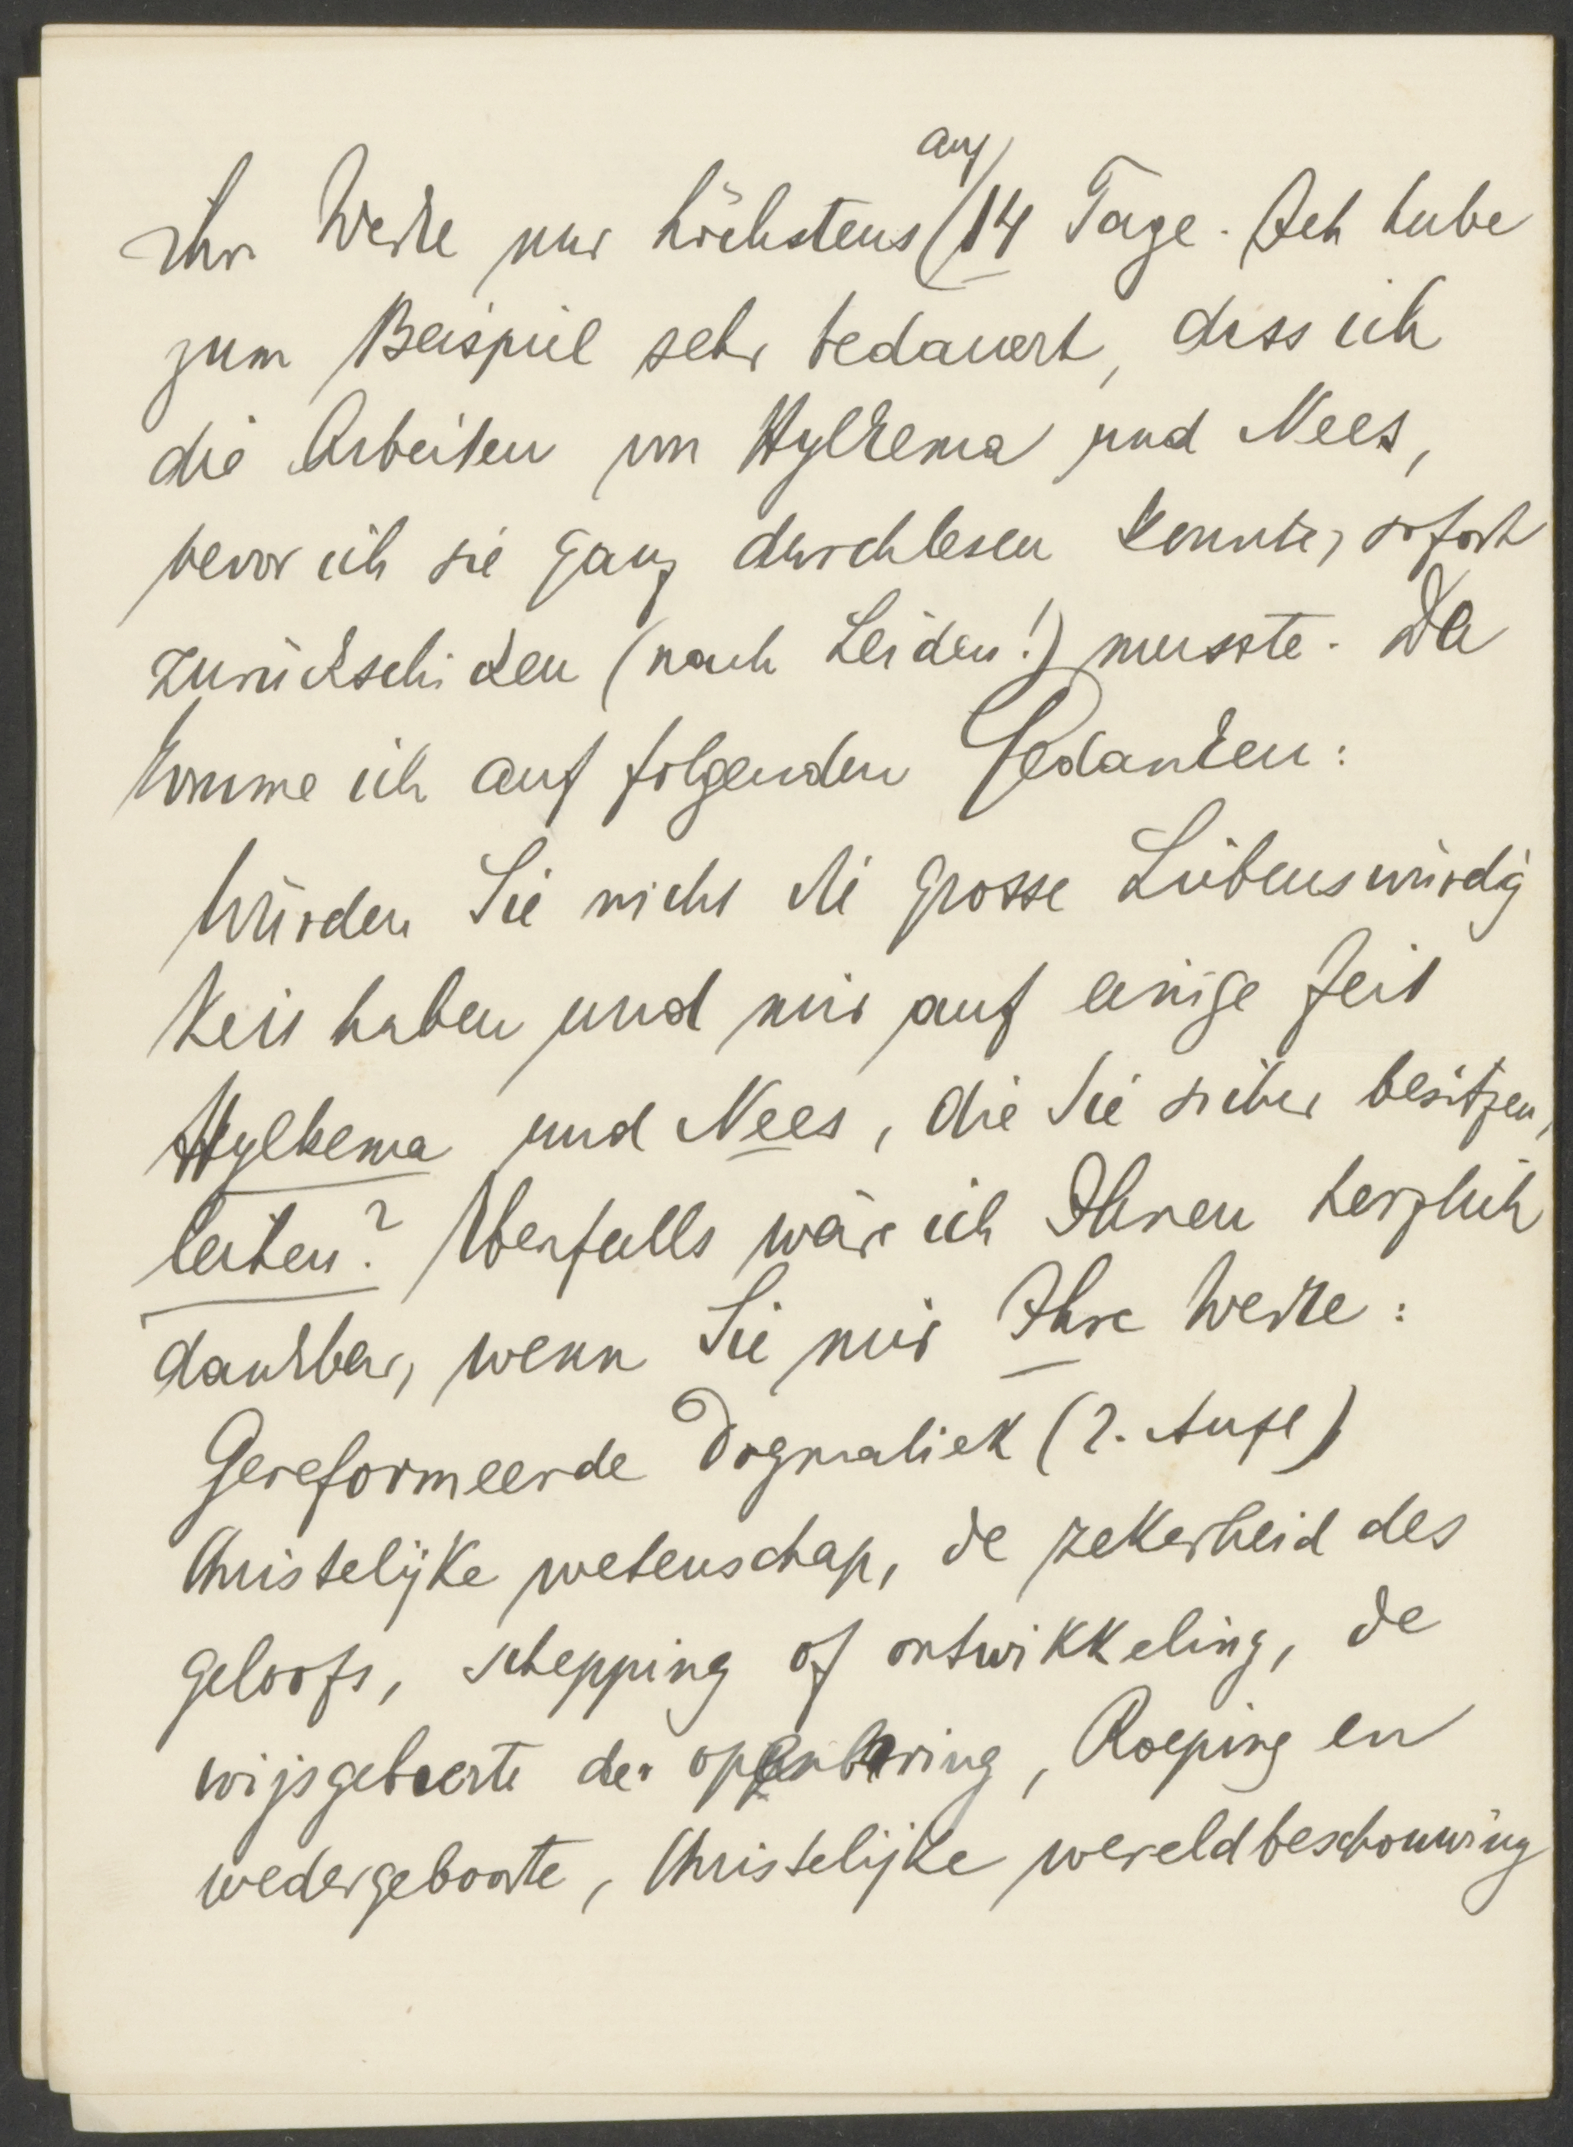 ihr Werke nur höchstens auf 14 Tage. Ich habe
zum Beispiel sehr bedauert, dass ich
die Arbeiten von Hylkema und Nees,
bevor ich sie ganz durchlesen konnte, sofort
zurückschicken (nach Leiden!) musste. Da
komme ich auf folgenden Gedanken:
Würden Sie nicht die grosse Liebenswürdig
keit haben und mir auf einige Zeit
Hylkema und Nees, die Sie sicher besitzen,
leihen? Ebenfalls wäre ich Ihnen herzlich
dankbar, wenn Sie mir Ihre Werke:
Gereformeerde Dogmatiek (2. Aufl)
Christelijke wetenschap, de zekerheid des
geloofs, schepping of ontwikkeling, de
wijsgebeerte der openbaring, Roeping en
wedergeboorte, Christelijke wereldbeschouwing